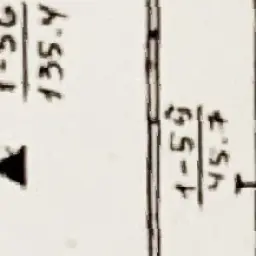 1-56
135.4
1-59
45.7